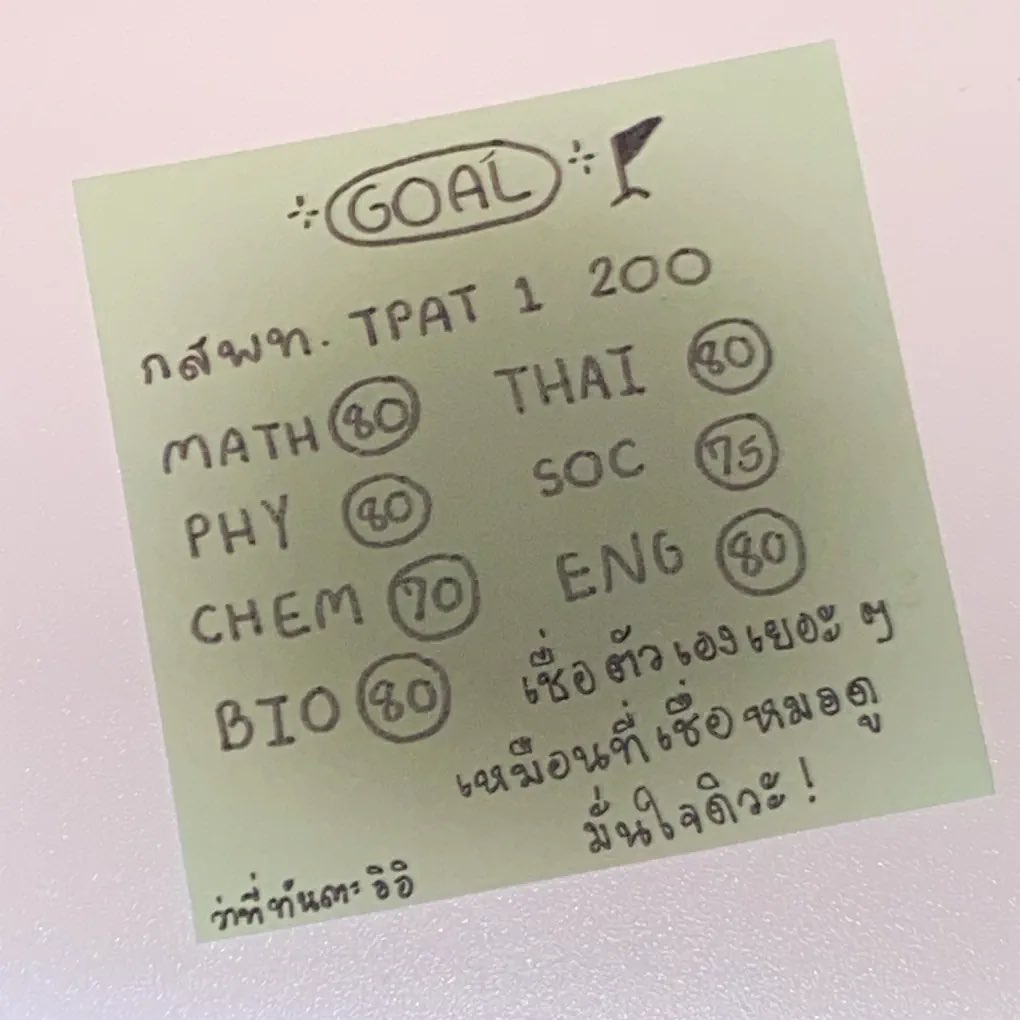 GOAL
กสพท. TPAT 1 200
MATH 80 THAI 80
PHY 80 SOC 75
CHEM 70 ENG 80
BIO 80
เชื่อตัวเองเยอะ ๆ
เหมือนที่เชื่อหมอดู
มั่นใจดิวะ!
ว่าที่ทันตะ อิอิ